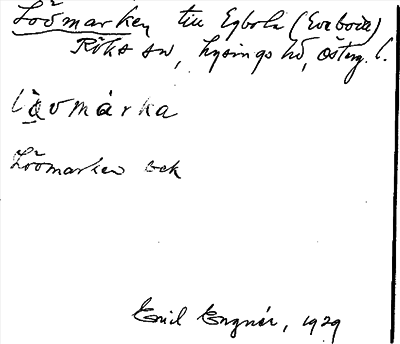 Lövmarken till Egbola (Evebola)
Röks sn, Lysings hd, Österg. l.
lȧvmárka
Lövmarken ock
Emil Engnér, 1929